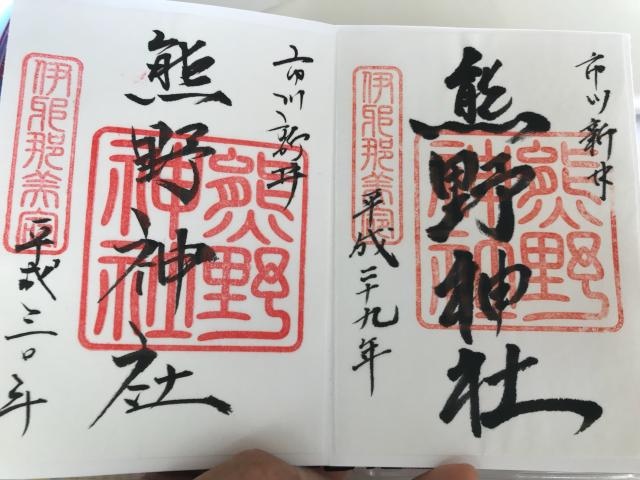 市川新井
熊野神社
熊野
神社
伊邪那美宮
平成二十九年
市川新井
熊野神社
熊野
神社
伊邪那美宮
平成三〇年